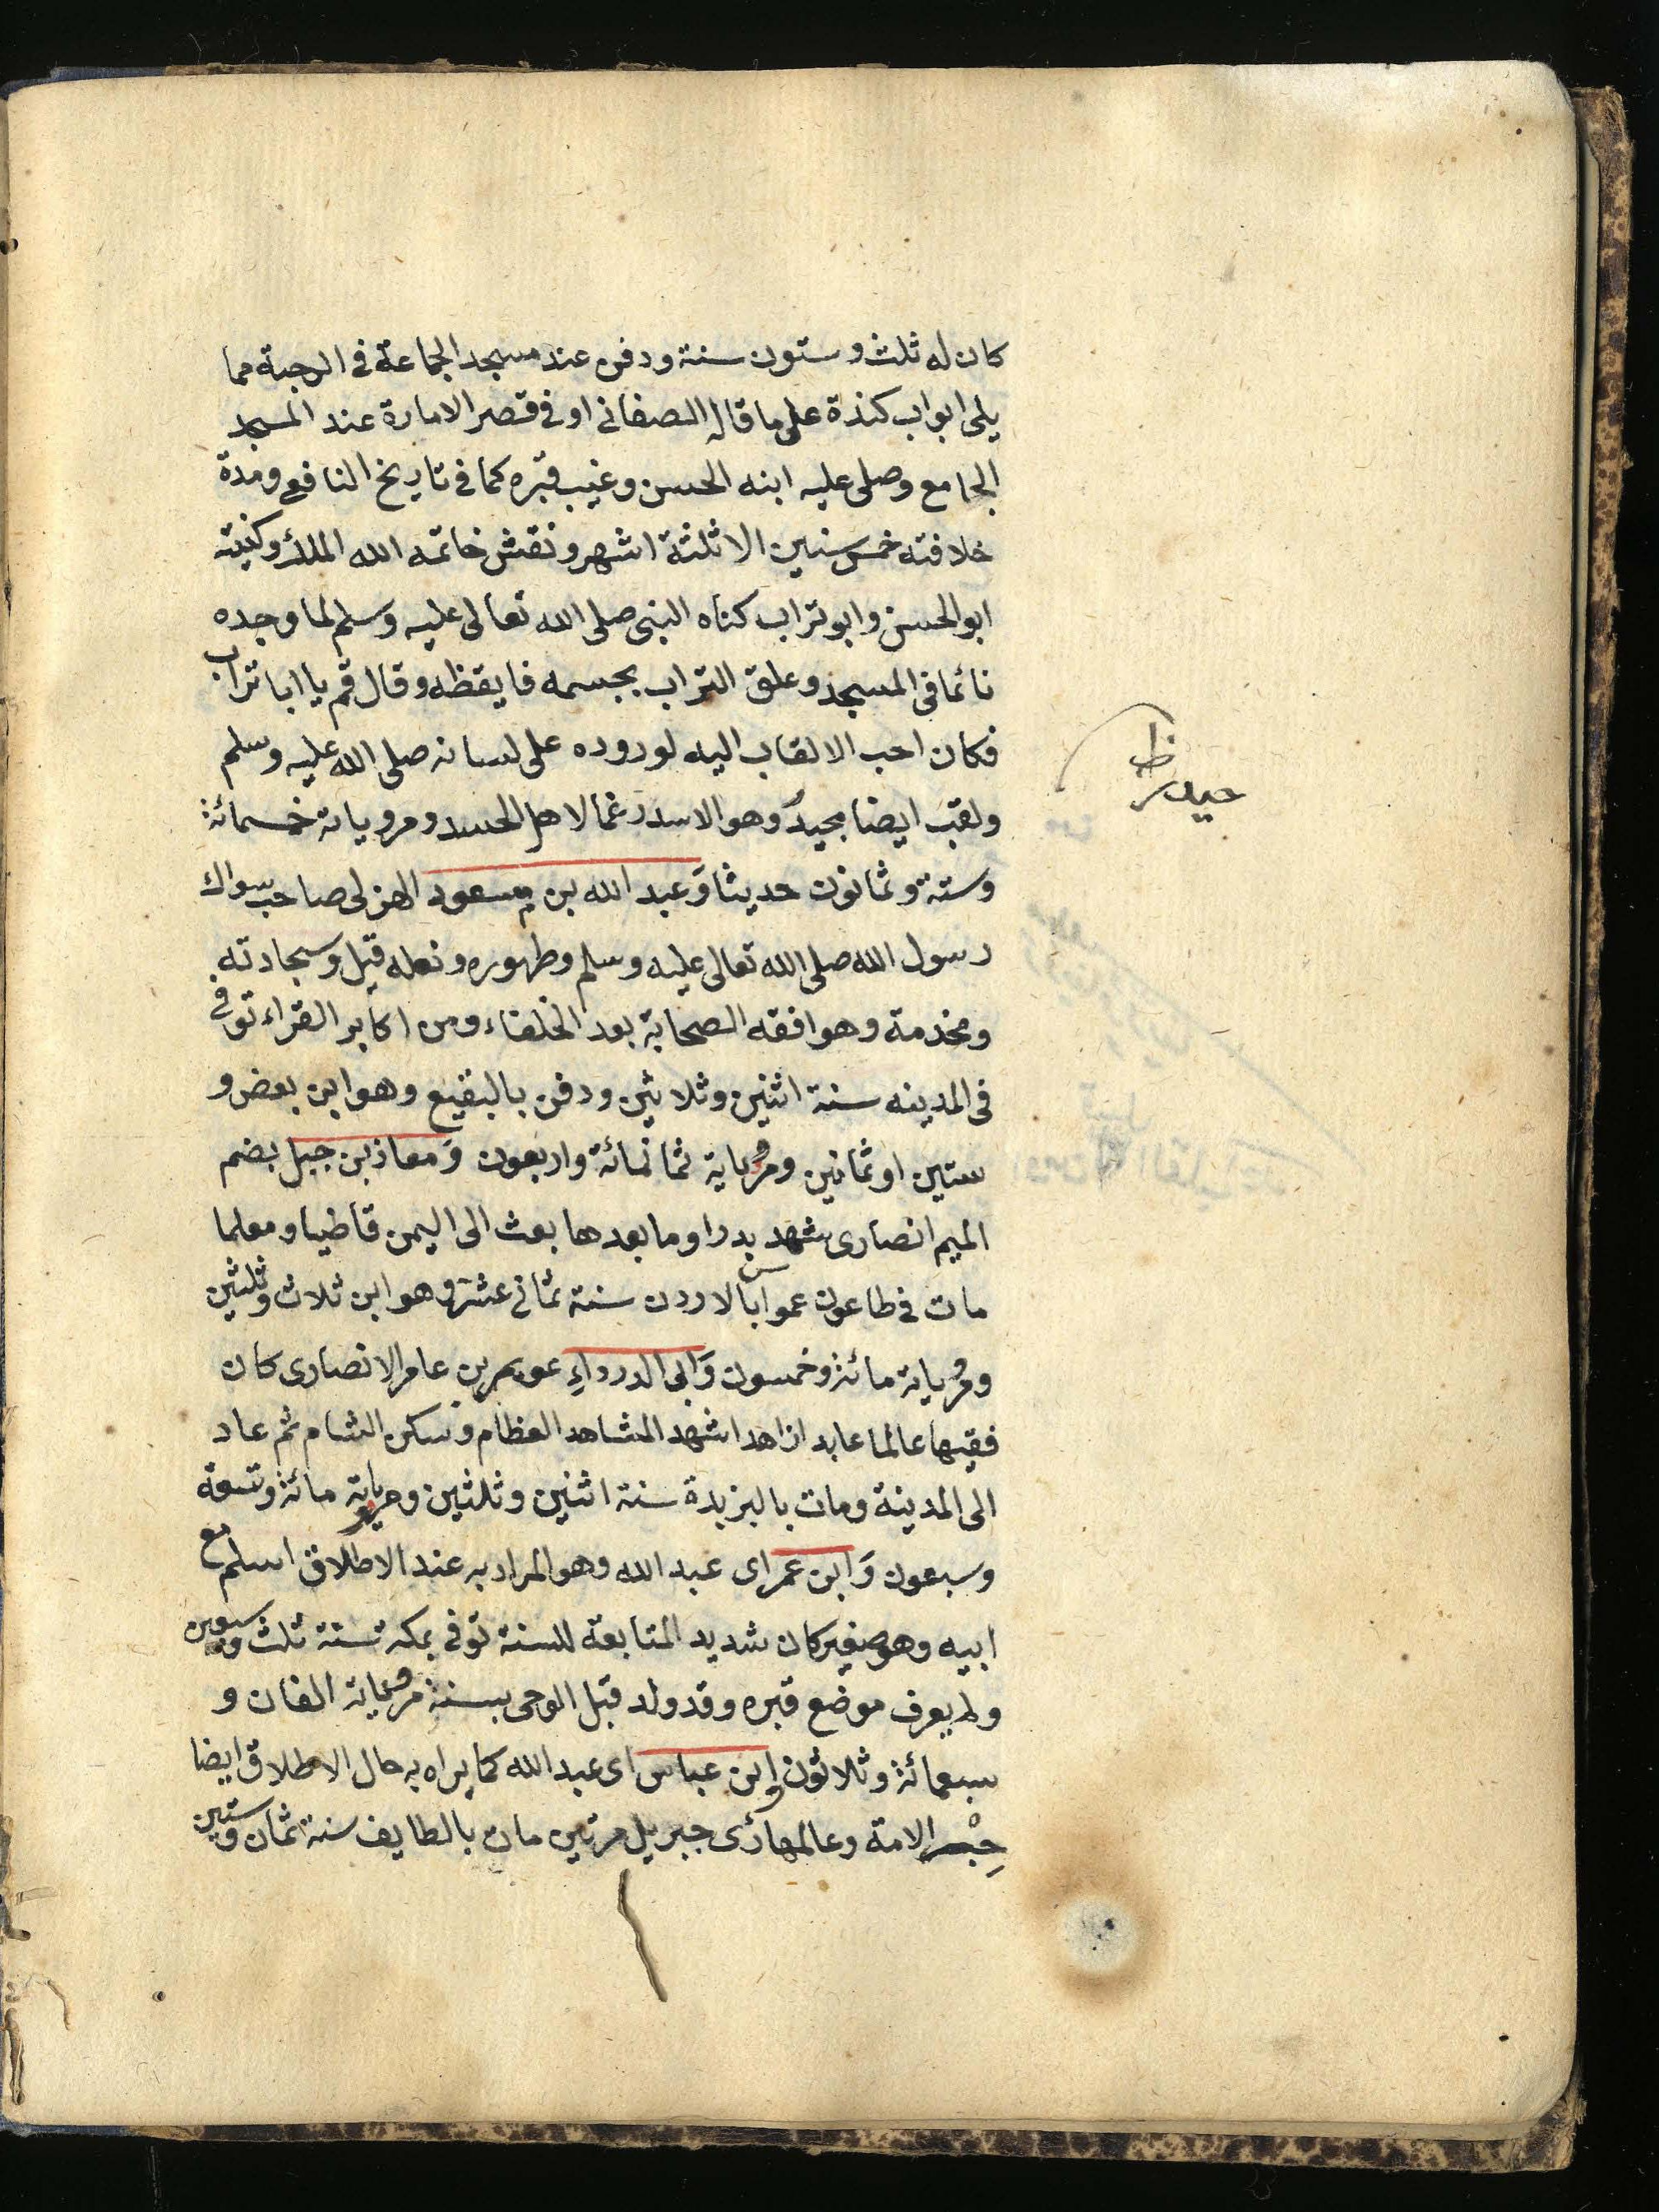 كان له ثلث وستون سنة ودفن عند مسجد الجماعة في الرحبة مما
يلى ابواب كندة على ما قاله الصغانى او في قصر الامارة عند المسجد
الجامع وصلى عليه ابنه الحسن وغيب قبره كما في تاريخ النافعى ومدة
خلافته خمس سنين الا ثلثة اشهر ونقش خاتمه الله الملك وكنيته
ابو الحسن وابو تراب كناه النبى صلى الله تعالى عليه وسلم لما وجده
نائما فى المسجد وعلق التراب بجسمه فايقظه وقال قم يا ابا تراب
فكان احب الالقاب اليه لوروده على لسانه صلى الله عليه وسلم
ولقب ايضا بحيدر وهو الاسد رغما لاهل الحسد ومروياته خمسمائة
وستة وثمانون حديثا وَعبد الله بن مسعود الهزلى صاحب سواك
رسول الله صلى الله تعالى عليه وسلم وطهوره ونعله قيل وسجادته
ومخدمة وهو افقه الصحابة بعد الخلفاء ومن اكابر القراء توفى
فى المدينه سنة اثنين وثلاثين ودفن بالبقيع وهو ابن بعض و
ستين او ثمانين ومروياية ثمانمائة واربعون وَمعاذ بن جبل بضم
الميم انصارى شهد بدرا وما بعدها بعث الى اليمن قاضيا ومعلما
مات في طاعون عمواس بالاردن سنة ثمانى عشرة وهو ابن ثلاث وثلثين
ومروياية مائة وخمسون وَابى الدرداءِ عويمر بن عامر الانصارى كان
فقيها عالما عابدا زاهدا شهد المشاهد العظام وسكن الشام ثم عاد
الى المدينة ومات بالبزبدة سنة اثنين وثلثين ومروياية مائة وتسعة
وسبعون وَابن عمر اى عبد الله وهو المراد به عند الاطلاق اسلم مع
ابيه وهو صغير كان شديد المتابعة للسنة توفى بمكة سنة ثلث وسبعين
ولم يعرف موضع قبره وقد ولد قبل الوحى بسنة مروياية الفان و
سبعمائة وثلاثون وابن عباس اى عبد الله كما يراد به حال الاطلاق ايضا
حِبْر الامة وعالمها رئى جبريل مرتين مات بالطايف سنة ثمان وستين
ظ
حيدر